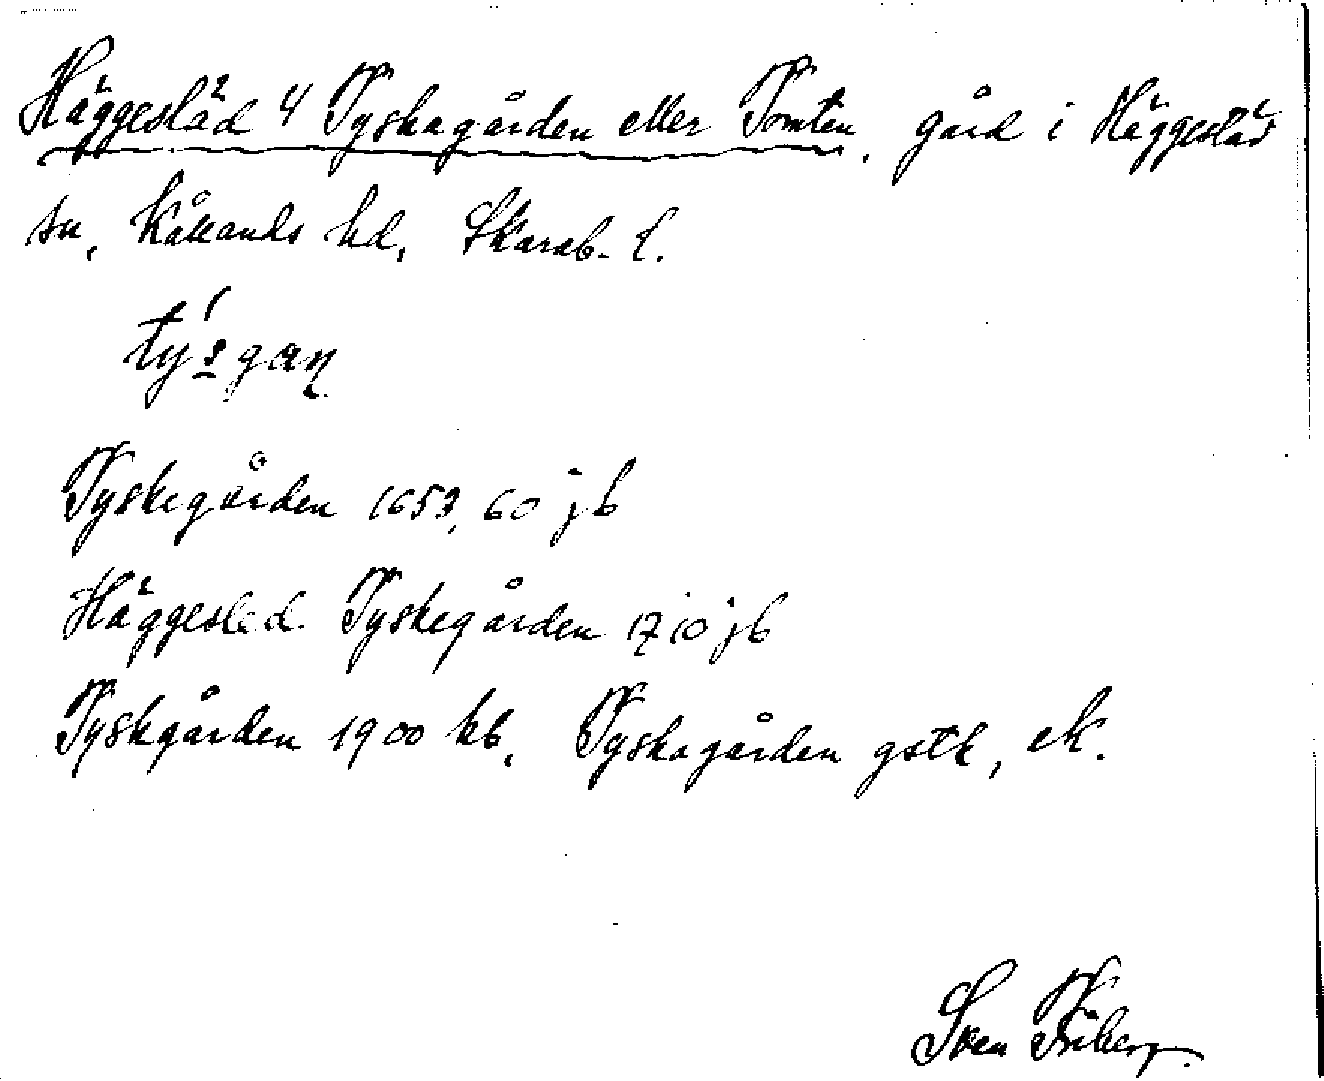 Häggesläd 4 Tyskagården eller Tomten, gård i Häggesläds
sn, Kållands hd, Skarab. l.
Tyskegården 1653, 60 jb
Häggesled Tyskegården 1710 jb
Tyskgården 1900 kb, Tyskagården gstb, ek.
Sven Friberg.